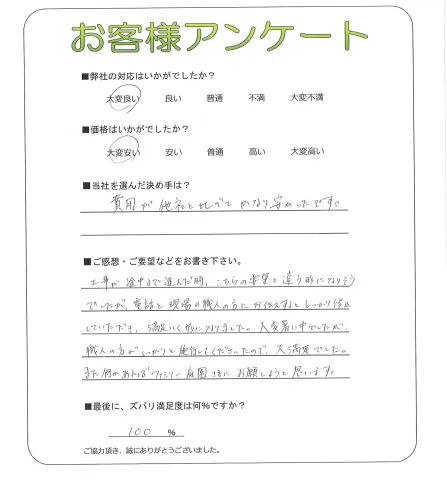 お客様アンケート
■弊社の対応はいかがでしたか?
大変良い 良い 普通 不満 大変不満
■価格はいかがでしたか?
大変安い 安い 普通 高い 大変高い
■当社を選んだ決め手は?
費用が他社と比べてかなり安かったです。
■ご感想・ご要望などをお書き下さい。
工事が途中まで進んだ時、こちらの希望と違う形になりそう
でしたが、電話と現場の職人の方にお伝えするとしっかり修正
していただき、満足いく形になりました。大変暑い中でしたが、
職人の方がしっかりと施行してくださったので、大満足でした。
また何かあればファミリー庭園さまにお願いしようと思います。
■最後に、ズバリ満足度は何%ですか?
100 %
ご協力頂き、誠にありがとうございました。